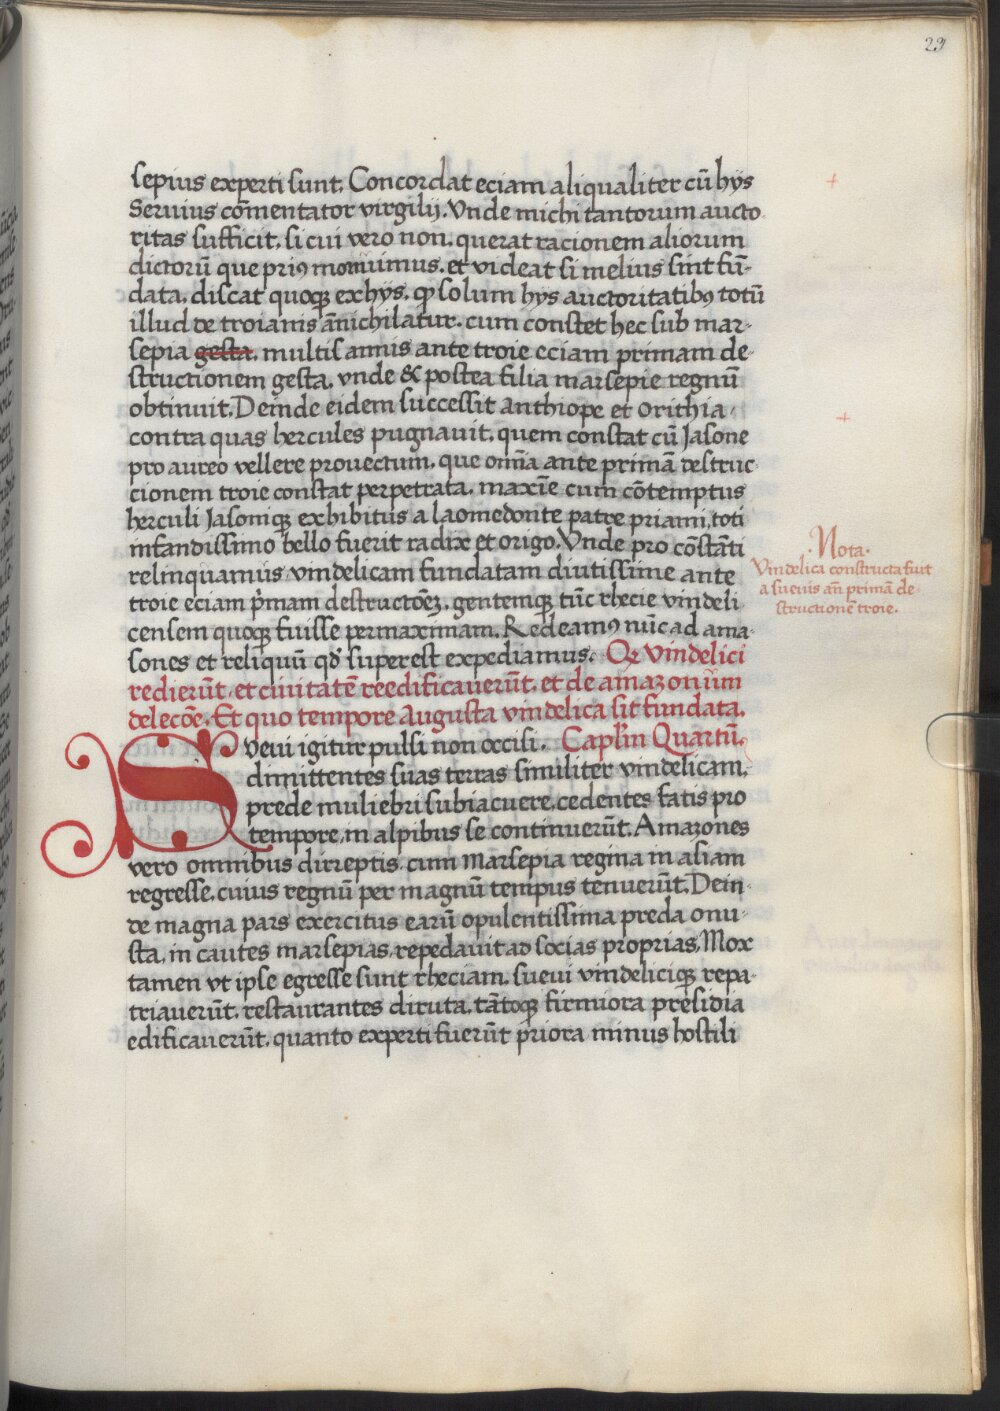 23
sepius experti sunt. Concordat eciam aliqualiter cū hys
Seruius cōmentator virgilij. Vnde michi tantorum aucto
ritas sufficit, si cui vero non, querat racionem aliorum
dictorū que priꝰ mouimus, et videat si melius sint fū-
data, discat quoqꝫ ex hys, ꝙ solum hys auctoritatibꝰ totū
illud de troianis ānichilatur, cum constet hec sub mar-
sepia gesta, multis annis ante troie eciam primam de-
structionem gesta, vnde & postea filia marsepie regnū
obtinuit. Deinde eidem successit anthiope et orithia,
contra quas hercules pugnauit, quem constat cū Jasone
pro aureo vellere prouectum, que om̄ia ante primā destruc
cionem troie constat perpetrata, maxīe cum cōtemptus
herculi Jasoniqꝫ exhibitus a laomedonte patre priami, toti
infandissimo bello fuerit radix et origo. Vnde pro cōstāti
relinquamus vindelicam fundatam diutissime ante
troie eciam p̄mam destructōeꝫ, gentemqꝫ tūc rhecie vindeli
censem quoqꝫ fuisse permaximam. Redeamꝰ nūc ad ama-
sones et reliquū qd̓ superest expediamus. Qꝫ vindelici
redierūt, et ciuitatē reedificauerūt, et de amazonum
delecōe. Et quo tempore Augusta vindelica sit fundata.
Sveui igitur pulsi non occisi. Caplm̄ Quartū.
dimittentes suas terras similiter vindelicam,
prede muliebri subiacuere, cedentes fatis pro
tempore, in alpibus se continuerūt. Amazones
vero omnibus direptis cum Marsepia regina in asiam
regresse, cuius regnū per magnū tempus tenuerūt. Dein-
de magna pars exercitus earū opulentissima preda onu-
sta, in cautes marsepias, repedauit ad socias proprias, Mox
tamen vt ipse egresse sunt rheciam, sueui vindeliciqꝫ repa-
triauerūt, restaurantes diruta, tātoqꝫ firmiora presidia
edificauerūt, quanto experti fuerūt priora minus hostili
.Nota.
Vindelica constructa fuit
a sueuis an̄ primā de-
structionē troie.